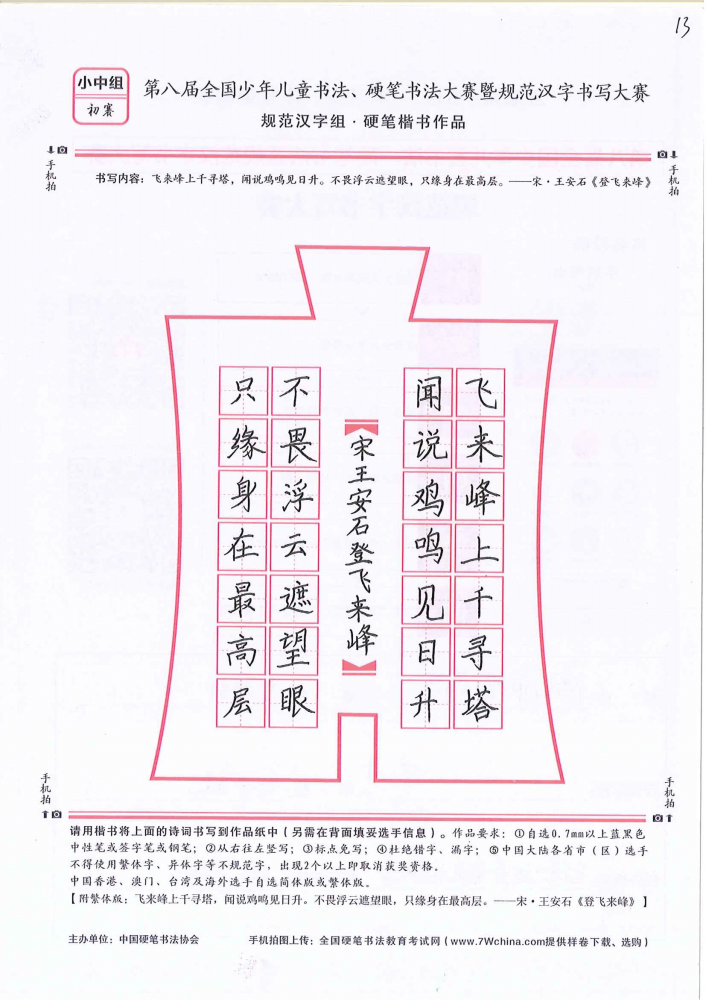 13
小中组
初赛
第八届全国少年儿童书法、硬笔书法大赛暨规范汉字书写大赛
规范汉字组·硬笔楷书作品
手机拍
手机拍
书写内容：飞来峰上千寻塔，闻说鸡鸣见日升。不畏浮云遮望眼，只缘身在最高层。——宋·王安石《登飞来峰》
飞来峰上千寻塔
闻说鸡鸣见日升
宋王安石登飞来峰
不畏浮云遮望眼
只缘身在最高层
手机拍
手机拍
请用楷书将上面的诗词书写到作品纸中（另需在背面填妥选手信息）。作品要求：①自选0.7mm以上蓝黑色
中性笔或签字笔或钢笔；②从右往左竖写；③标点免写；④杜绝错字、漏字；⑤中国大陆各省市（区）选手
不得使用繁体字、异体字等不规范字，出现2个以上即取消获奖资格。
中国香港、澳门、台湾及海外选手自选简体版或繁体版。
【附繁体版：飞来峰上千寻塔，闻说鸡鸣见日升。不畏浮云遮望眼，只缘身在最高层。——宋·王安石《登飞来峰》】
主办单位：中国硬笔书法协会
手机拍图上传：全国硬笔书法教育考试网（www.7Wchina.com提供样卷下载、选购）